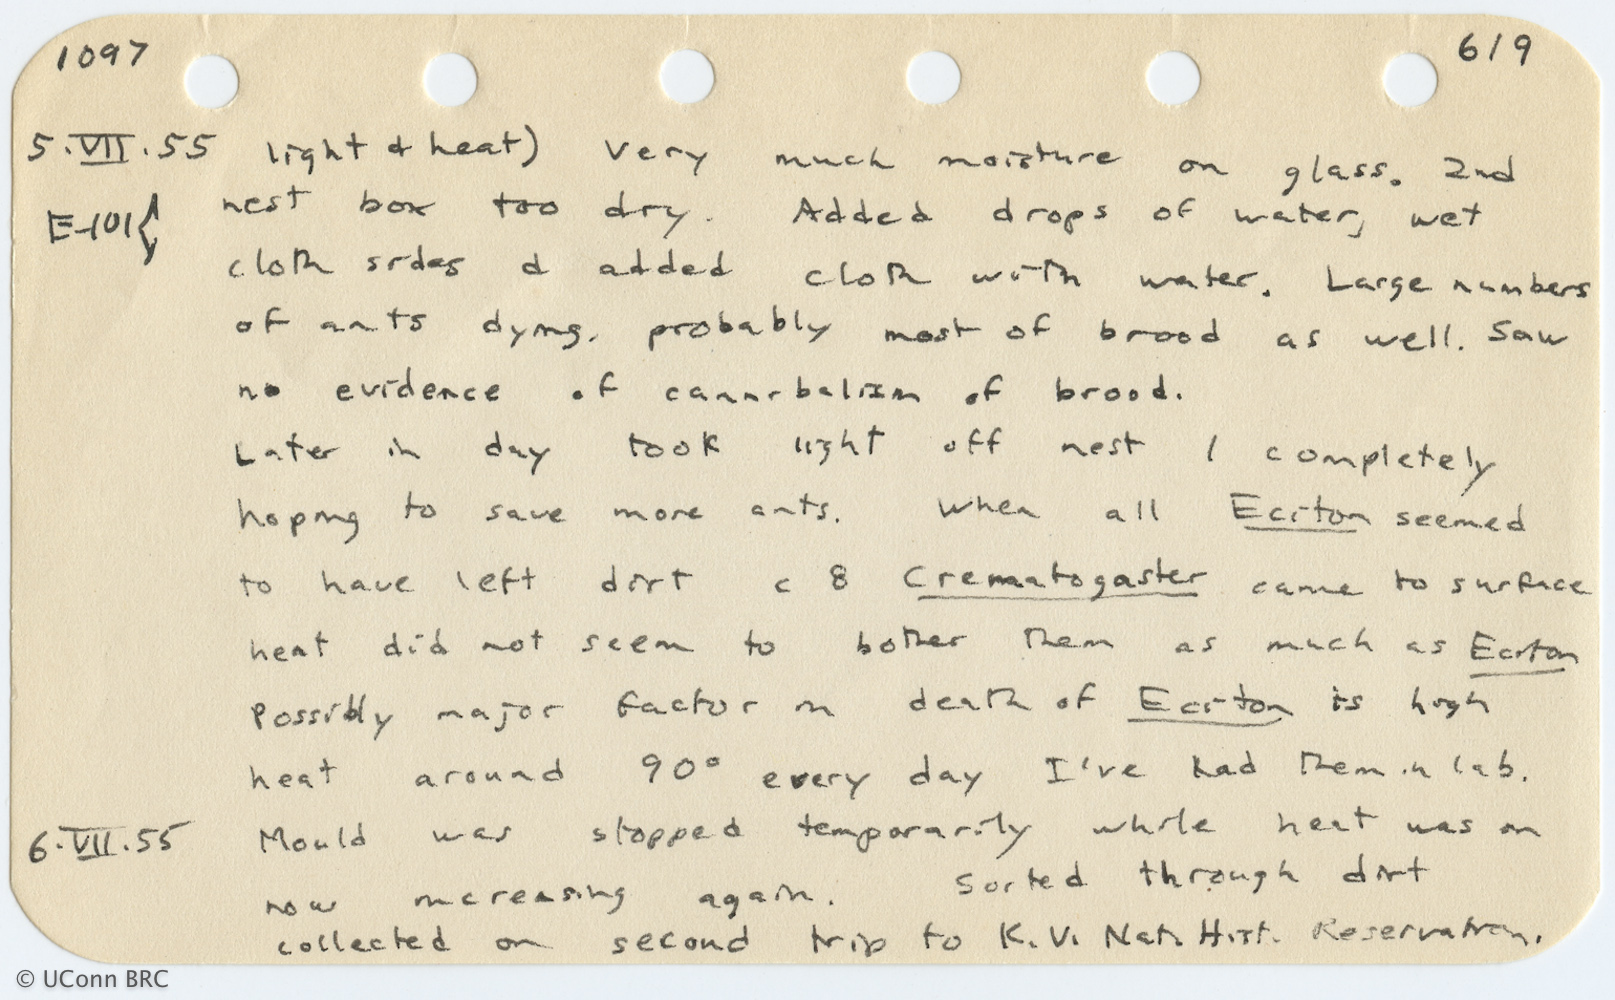 1097 619
5.VII.55 light & heat) Very much moisture on glass. 2nd
E-101{ nest box too dry. Added drops of water, wet
cloth sides & added cloth with water. Large numbers
of ants dying, probably most of brood as well. Saw
no evidence of cannibalism of brood.
Later in day took light off nest 1 completely
hoping to save more ants. When all Eciton seemed
to have left dirt c 8 Crematogaster came to surface
heat did not seem to bother them as much as Eciton
Possibly major factor in death of Eciton is high
heat around 90° every day I've had them in lab.
6.VII.55 Mould was stopped temporarily while heat was on
now increasing again. Sorted through dirt
collected on second trip to K.V. Nat. Hist. Reservation.
© UConn BRC